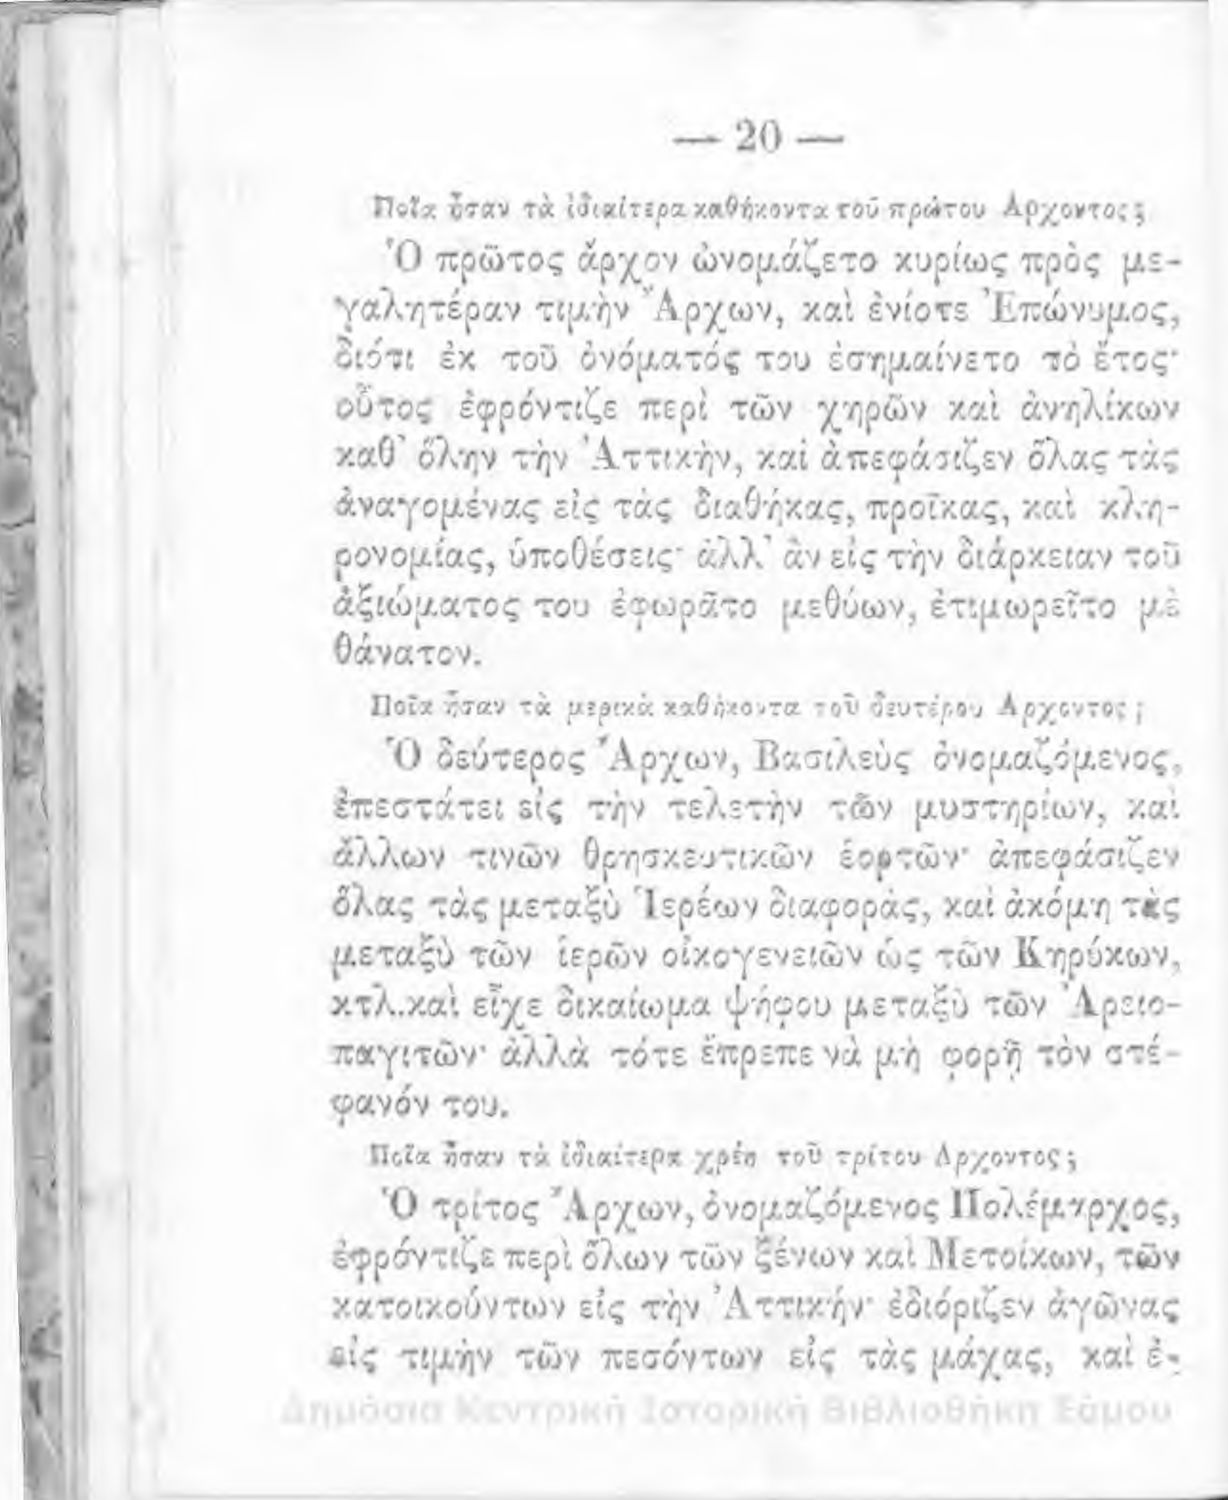 — 20 —
Ποῖα ἦσαν τὰ ἰδιαίτερα καθήκοντα τοῦ πρώτου Αρχοντος;
Ὁ πρῶτος ἄρχον ὠνομάζετο κυρίως πρὸς με-
γαλητέραν τιμὴν Ἄρχων, καὶ ἐνίοτε Ἐπώνυμος,
διότι ἐκ τοῦ ὀνόματός του ἐσημαίνετο τὸ ἔτος·
οὗτος ἐφρόντιζε περὶ τῶν χηρῶν καὶ ἀνηλίκων
καθ᾽ ὅλην τὴν Ἀττικὴν, καὶ ἀπεφάσιζεν ὅλας τὰς
ἀναγομένας εἰς τὰς διαθήκας, προῖκας, καὶ κλη-
ρονομίας, ὑποθέσεις· ἀλλ᾽ ἂν εἰς τὴν διάρκειαν τοῦ
ἀξιώματος του ἐφωρᾶτο μεθύων, ἐτιμωρεῖτο μὲ
θάνατον.
Ποῖα ἦσαν τὰ μερικὰ καθήκοντα τοῦ δευτέρου Αρχοντος;
Ὁ δεύτερος Ἄρχων, Βασιλεὺς ὀνομαζόμενος,
ἐπεστάτει εἰς τὴν τελετὴν τῶν μυστηρίων, καὶ
ἄλλων τινῶν θρησκευτικῶν ἑορτῶν· ἀπεφάσιζεν
ὅλας τὰς μεταξὺ Ἱερέων διαφορὰς, καὶ ἀκόμη τὰς
μεταξὺ τῶν ἱερῶν οἰκογενειῶν ὡς τῶν Κηρύκων,
κτλ. καὶ εἶχε δικαίωμα ψήφου μεταξὺ τῶν Ἀρειο-
παγιτῶν· ἀλλὰ τότε ἔπρεπε νὰ μὴ φορῇ τὸν στέ-
φανόν του.
Ποῖα ἦσαν τὰ ἰδιαίτερα χρέη τοῦ τρίτου Αρχοντος;
Ὁ τρίτος Ἄρχων, ὀνομαζόμενος Πολέμαρχος,
ἐφρόντιζε περὶ ὅλων τῶν ξένων καὶ Μετοίκων, τῶν
κατοικούντων εἰς τὴν Ἀττικήν· ἐδιόριζεν ἀγῶνας
εἰς τιμὴν τῶν πεσόντων εἰς τὰς μάχας, καὶ ἐ-
Δημόσια Κεντρική Ιστορική Βιβλιοθήκη Σάμου